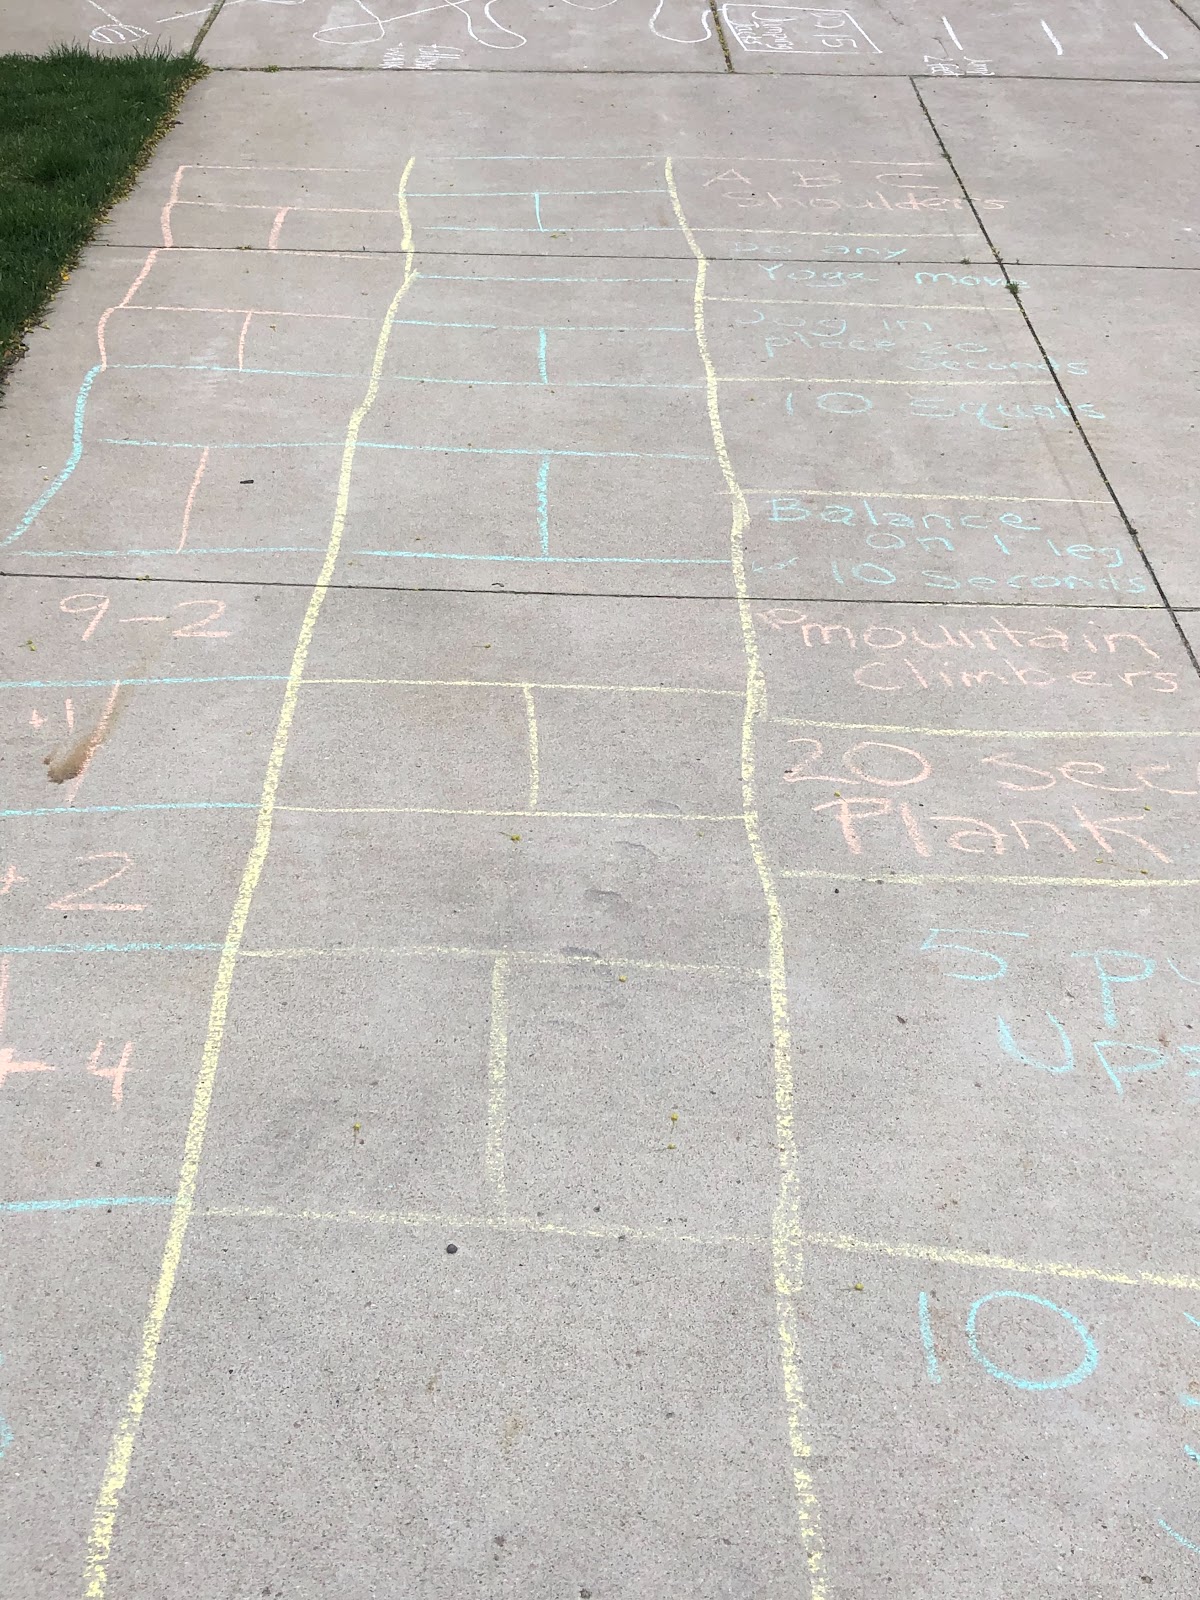 A B C
Shoulders
Do any
Yoga move
Jog in
place 30
seconds
10 Squats
Balance
on 1 leg
10 Seconds
mountain
Climbers
20 sec
Plank
5 Pu
Ups
10
9-2
+1
+2
+4